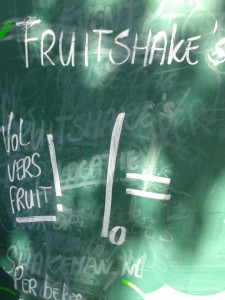 FRUITSHAKE'S
VOL
VERS
FRUIT!
1.=
SHAKEMAN.NL
PER beker